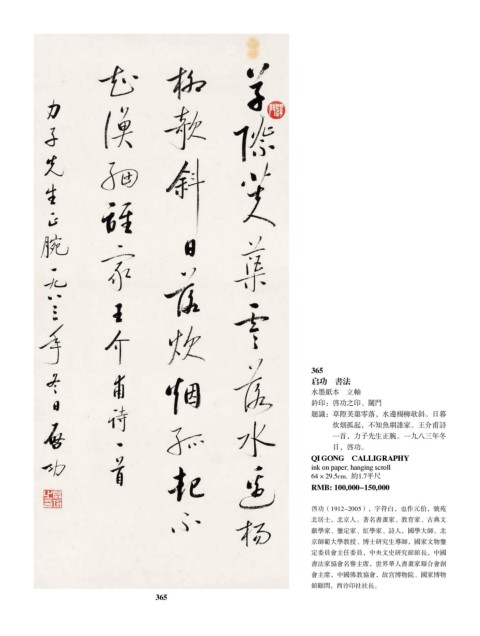 草際芙蕖零落水邊楊
柳欹斜日落炊烟孤起不
知漁網誰家王介甫詩一首
力子先生正腕一九八三年冬日啟功
365
启功 書法
水墨紙本 立軸
鈐印：啓功之印、
題識：草際芙蕖零落，水邊楊柳欹斜。日暮
炊烟孤起，不知魚網誰家。王介甫詩
一首，力子先生正腕。一九八三年冬
日，啓功。
QI GONG CALLIGRAPHY
ink on paper, hanging scroll
64 × 29.5cm. 約1.7平尺
RMB: 100,000-150,000
啓功（1912-2005），字符白，也作元伯，號苑
北居士，北京人。著名書畫家、教育家、古典文
獻學家、鑒定家、紅學家、詩人，國學大師。北
京師範大學教授、博士研究生導師，國家文物鑒
定委員會主任委員，中央文史研究館館長，中國
書法家協會名譽主席，世界華人書畫家聯合會創
會主席，中國佛教協會，故宮博物院、國家博物
館顧問，西泠印社社長。
365